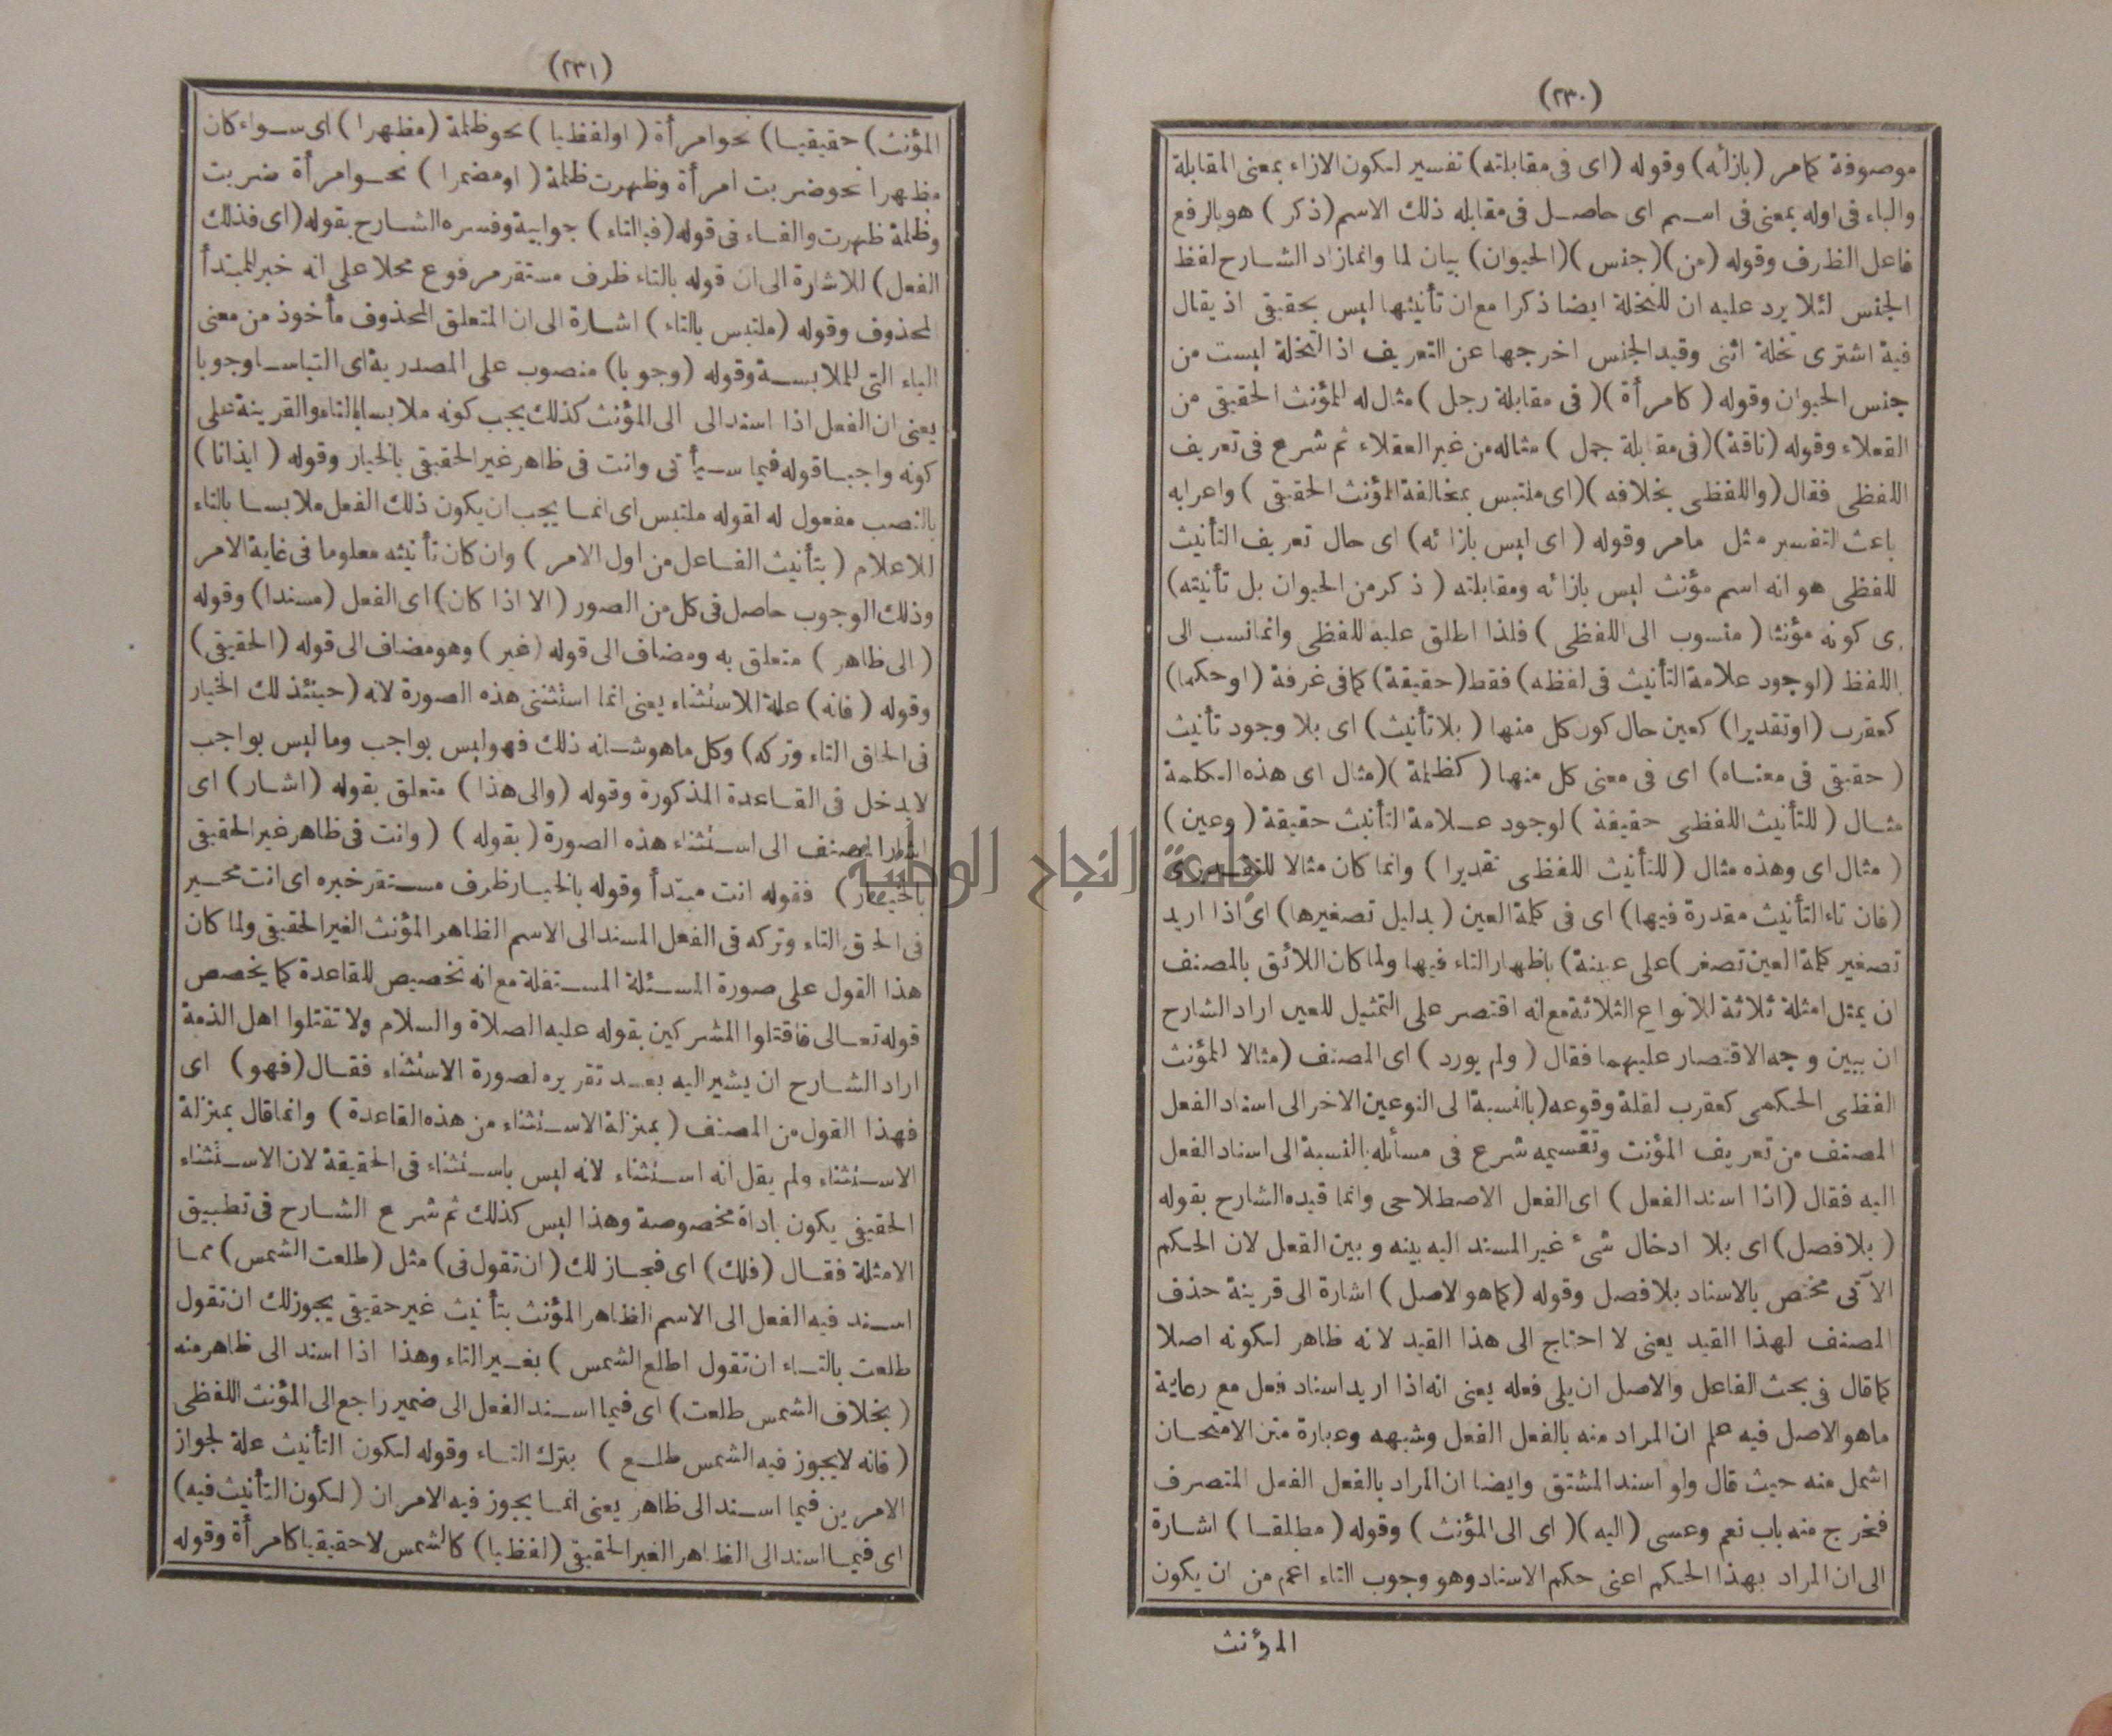 (٢٣٠)
موصوفة كمامر (بازأئه) وقوله (اى فى مقابلته) تفسير لكون الازاء بمعنى المقابلة
والباء فى اوله بمعنى فى اسم اى حاصل فى مقابله ذلك الاسم (ذكر) هو بالرفع
فاعل الظرف وقوله (من) (جنس) (الحيوان) بيان لما وانمازاد الشارح لفظ
الجنس لئلا يرد عليه ان للنخلة ايضا ذكرا مع ان تأنيثها ليس بحقيقى اذ يقال
فية اشترى نخلة انثى وقيد الجنس اخرجها عن التعريف اذ النخلة ليست من
جنس الحيوان وقوله (كامرأة) (فى مقابلة رجل) مثال له للمؤنث الحقيقى من
العقلاء وقوله (ناقة) (فى مقابلة جمل) مثاله من غير العقلاء ثم شرع فى تعريف
اللفظى فقال (واللفظى بخلافه) (اى ملتبس بمخالفة المؤنث الحقيقى) واعرابه
باعث التفسير مثل مامر وقوله (اى ليس بازائه) اى حال تعريف التأنيث
للفظى هو انه اسم مؤنث ليس بازائه ومقابلته (ذكر من الحيوان بل تأنيثه)
ى كونه مؤنثا (منسوب الى اللفظى) فلذا اطلق عليه للفظى وانمانسب الى
اللفظ (لوجود علامة التأنيث فى لفظه) فقط (حقيقة) كمافى غرفة (اوحكما)
كعقرب (اوتقديرا) كعين حال كون كل منها (بلا تأنيث) اى بلا وجود تأنيث
(حقيقى فى معناه) اى فى معنى كل منها (كظلمة) (مثال اى هذه الكلمة
مثال (للتأنيث اللفظى حقيقة) لوجود علامة التأنيث حقيقة (وعين)
(مثال اى وهذه مثال (للتأنيث اللفظى تقديرا) وانما كان مثالا للتقديرى
(فان تاء التأنيث مقدرة فيها) اى فى كلمة العين (بدليل تصغيرها) اى اذا اريد
تصغير كلمة العين تصغر) على عيينة) باظهار التاء فيها ولما كان اللائق بالمصنف
ان يمثل امثلة ثلاثة للانواع الثلاثة مع انه اقتصر على التمثيل للعين اراد الشارح
ان يبين وجه الاقتصار عليهما فقال (ولم يورد) اى المصنف (مثالا للمؤنث
اللفظى الحكمى كعقرب لقلة وقوعه (بالنسبة الى النوعين الاخر الى اسناد الفعل
المصنف من تعريف المؤنث وتقسيمه شرع فى مسأله بالنسبة الى اسناد الفعل
اليه فقال (اذا اسند الفعل) اى الفعل الاصطلاحى وانما قيده الشارح بقوله
(بلا فصل) اى بلا ادخال شىء غير المسند اليه بينه وبين الفعل لان الحكم
الآتى مختص بالاسناد بلا فصل وقوله (كما هو الاصل) اشارة الى قرينة حذف
المصنف لهذا القيد يعنى لا احتاج الى هذا القيد لانه ظاهر لكونه اصلا
كما قال فى بحث الفاعل والاصل ان يلى فعله يعنى انه اذا اريد اسناد فعل مع رعاية
ما هو الاصل فيه علم ان المراد منه بالفعل الفعل وشبهه وعبارة متن الامتحان
اشمل منه حيث قال ولو اسند المشتق وايضا ان المراد بالفعل الفعل المتصرف
فخرج منه باب نعم وعسى (اليه) (اى الى المؤنث) وقوله (مطلقا) اشارة
الى ان المراد بهذا الحكم اعنى حكم الاسناد وهو وجوب التاء اعم من ان يكون
المؤنث
(٢٣١)
المؤنث) حقيقيا) نحو امرأة (اولفظيا) نحو ظلمة (مظهرا) اى سواء كان
مظهرا نحو ضربت امرأة وظهرت ظلمة (اومضمرا) نحو امرأة ضربت
وظلمة ظهرت والفاء فى قوله (فبالتاء) جوابية وفسره الشارح بقوله (اى فذلك
الفعل) للاشارة الى ان قوله بالتاء ظرف مستقر مرفوع محلا على انه خبر للمبتدأ
المحذوف وقوله (ملتبس بالتاء) اشارة الى ان المتعلق المحذوف مأخوذ من معنى
الباء التى للملابسة وقوله (وجوبا) منصوب على المصدرية اى التباسا وجوبا
يعنى ان الفعل اذا اسند الى الى المؤنث كذلك يجب كونه ملابسا بالتاء والقرينة على
كونه واجبا قوله فيما سيأتى وانت فى ظاهر غير الحقيقى بالخيار وقوله (ايذانا)
بالنصب مفعول له لقوله ملتبس اى انما يجب ان يكون ذلك الفعل ملابسا بالتاء
للاعلام (بتأنيث الفاعل من اول الامر) وان كان تأنيثه معلوما فى غاية الامر
وذلك الوجوب حاصل فى كل من الصور (الا اذا كان) اى الفعل (مسندا) وقوله
(الى ظاهر) متعلق به ومضاف الى قوله (غير) وهو مضاف الى قوله (الحقيقى)
وقوله (فانه) علة للاستثناء يعنى انما استثنى هذه الصورة لانه (حينئذ لك الخيار
فى الحاق التاء وتركه) وكل ما هو شانه ذلك فهو ليس بواجب وما ليس بواجب
لا يدخل فى القاعدة المذكورة وقوله (والى هذا) متعلق بقوله (اشار) اى
اشار المصنف الى استثناء هذه الصورة (بقوله) (وانت فى ظاهر غير الحقيقى
بالخيار) فقوله انت مبتدأ وقوله بالخيار ظرف مستقر خبره اى انت مخير
فى الحق التاء وتركه فى الفعل المسند الى الاسم الظاهر المؤنث الغير الحقيقى ولما كان
هذا القول على صورة المسئلة المستقلة مع انه تخصيص للقاعدة كما يخصص
قوله تعالى فاقتلوا المشركين بقوله عليه الصلاة والسلام ولا تقتلوا اهل الذمة
اراد الشارح ان يشير اليه بعد تقريره لصورة الاستثناء فقال (فهو) اى
فهذا القول من المصنف (بمنزلة الاستثناء من هذه القاعدة) وانما قال بمنزلة
الاستثناء ولم يقل انه استثناء لانه ليس باستثناء فى الحقيقة لان الاستثناء
الحقيقى يكون باداة مخصوصة وهذا ليس كذلك ثم شرع الشارح فى تطبيق
الامثلة فقال (فلك) اى فجاز لك (ان تقول فى) مثل (طلعت الشمس) مما
اسند فيه الفعل الى الاسم الظاهر المؤنث بتأنيث غير حقيقى يجوز لك ان تقول
طلعت بالتاء ان تقول اطلع الشمس) بغير التاء وهذا اذا اسند الى ظاهر منه
(بخلاف الشمس طلعت) اى فيما اسند الفعل الى ضمير راجع الى المؤنث اللفظى
(فانه لا يجوز فيه الشمس طلع) بترك التاء وقوله لكون التأنيث علة لجواز
الامرين فيما اسند الى ظاهر يعنى انما يجوز فيه الامران (لكون التأنيث فيه)
اى فيما اسند الى الظاهر الغير الحقيقى (لفظيا) كالشمس لا حقيقيا كامرأة وقوله
جامعة النجاح الوطنية